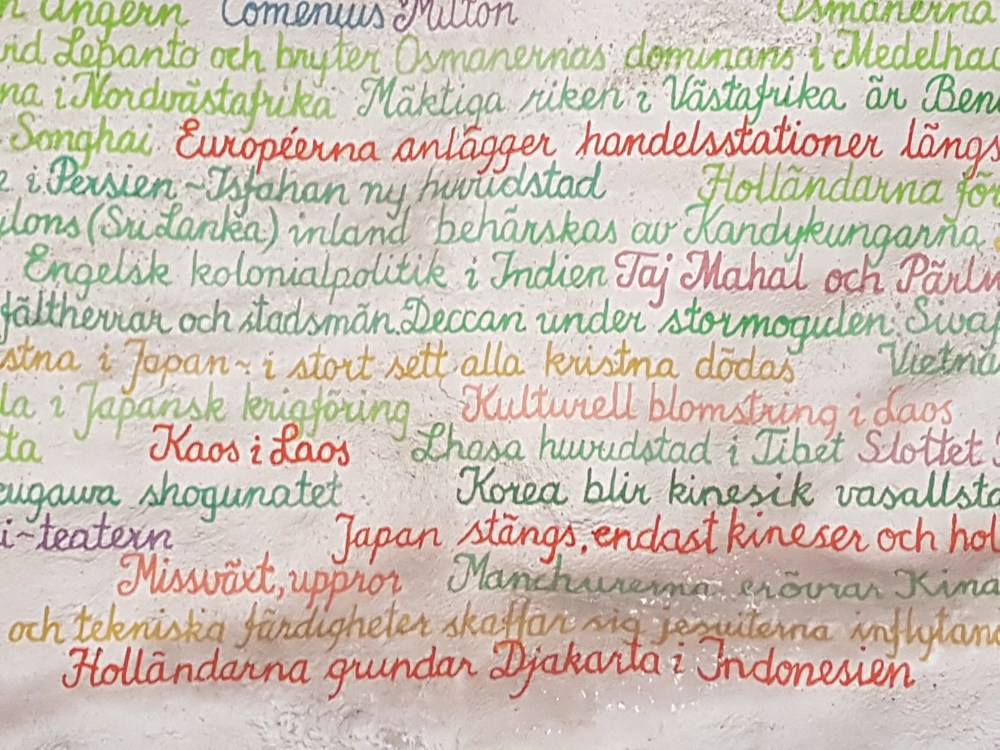 n Ungern Comenius Milton Osmanerna
vid Lepanto och bryter Osmanernas dominans i Medelhav
na i Nordvästafrika Mäktiga riken i Västafrika är Ben
Songhai Européerna anlägger handelsstationer längs
e i Persien ~ Isfahan ny huvudstad Holländarna för
ylons (Sri Lanka) inland behärskas av Kandykungarna
Engelsk kolonialpolitik i Indien Taj Mahal och Pärlm
fältherrar och stadsmän. Deccan under stormogulen Sivaj
stna i Japan ~ i stort sett alla kristna dödas Vietna
la i Japansk krigföring Kulturell blomstring i Laos
ta Kaos i Laos Lhasa huvudstad i Tibet Slottet
kugawa shogunatet Korea blir kinesik vasallsta
i-teatern Japan stängs, endast kineser och hol
Missväxt, uppror Manchurerna erövrar Kina
och tekniska färdigheter skaffar sig jesuiterna inflytan
Holländarna grundar Djakarta i Indonesien